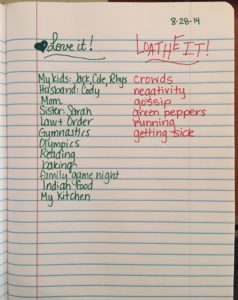 8-28-14
Love it!
LOATHE IT!
My kids: Jack, Cole, Rhys
Husband: Cody
Mom
Sister: Sarah
Law + Order
Gymnastics
Olympics
Reading
baking
family game night
Indian food
My Kitchen
crowds
negativity
gossip
green peppers
running
getting sick